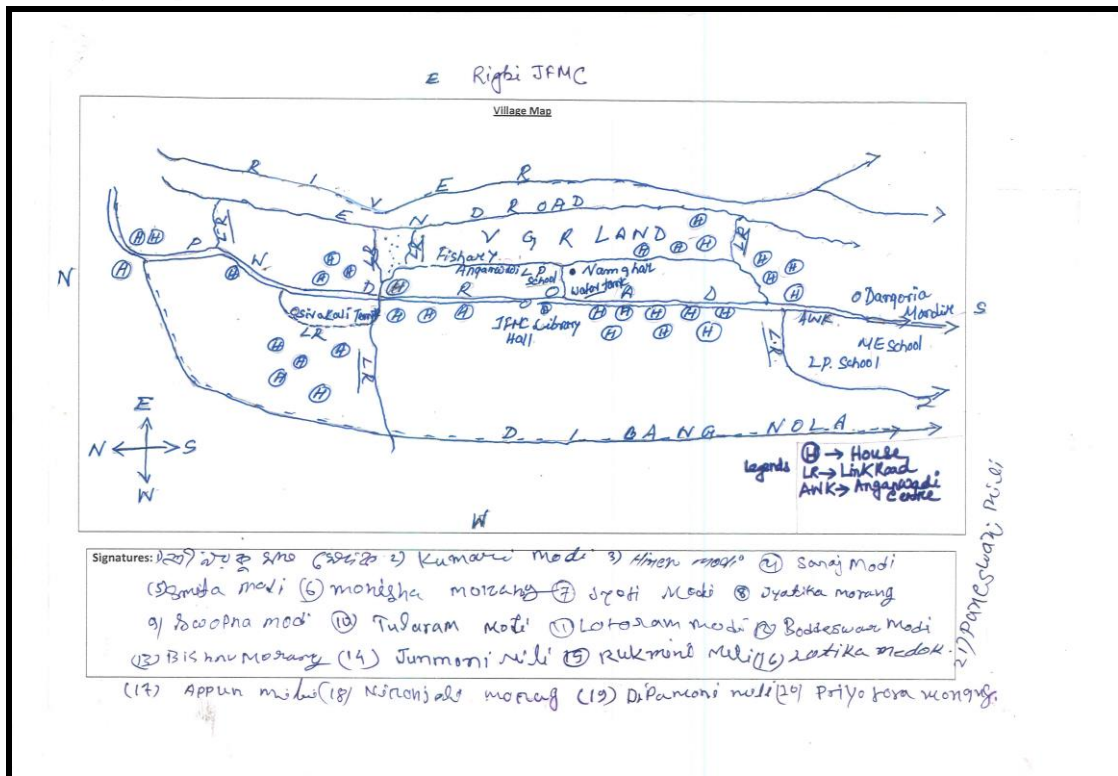 E Rigbi JFMC
Village Map
R I V E R
E N D ROAD
V G R LAND
LR
LR
LR
LR
Fishary
Anganwadi L P School
Namghar
Water tank
N
P W D R O A D
S
Sivakali Templ
LR
LR
JFMC Library
Hall
AWK
Dangoria
Mandir
ME School
L.P. School
L.R
H H H H H H H H H H H H H H H H H H H H H H H H H H H H H H
D I BANG NOLA
E
N S
W
Legends H → House
LR → Link Road
AWK → Anganwadi
Centre
W
Signatures: 2) Kumari Modi 3) Hiren modi 4) Saraj Modi
(5) Smita modi (6) monisha morang 7) Jyoti Modi 8) Jyatika morang
9) Swopna modi 10) Tularam modi 11) Lotoram modi 12) Bodeswar Modi
(13) Bishnu Morang (14) Junmoni Mili 15) Rukmini Mili (16) Latika medok.
(17) Appun mili (18) Niranjali morang (19) Dipamoni mili (20) Priyo morang.
21) Paneswari Mili